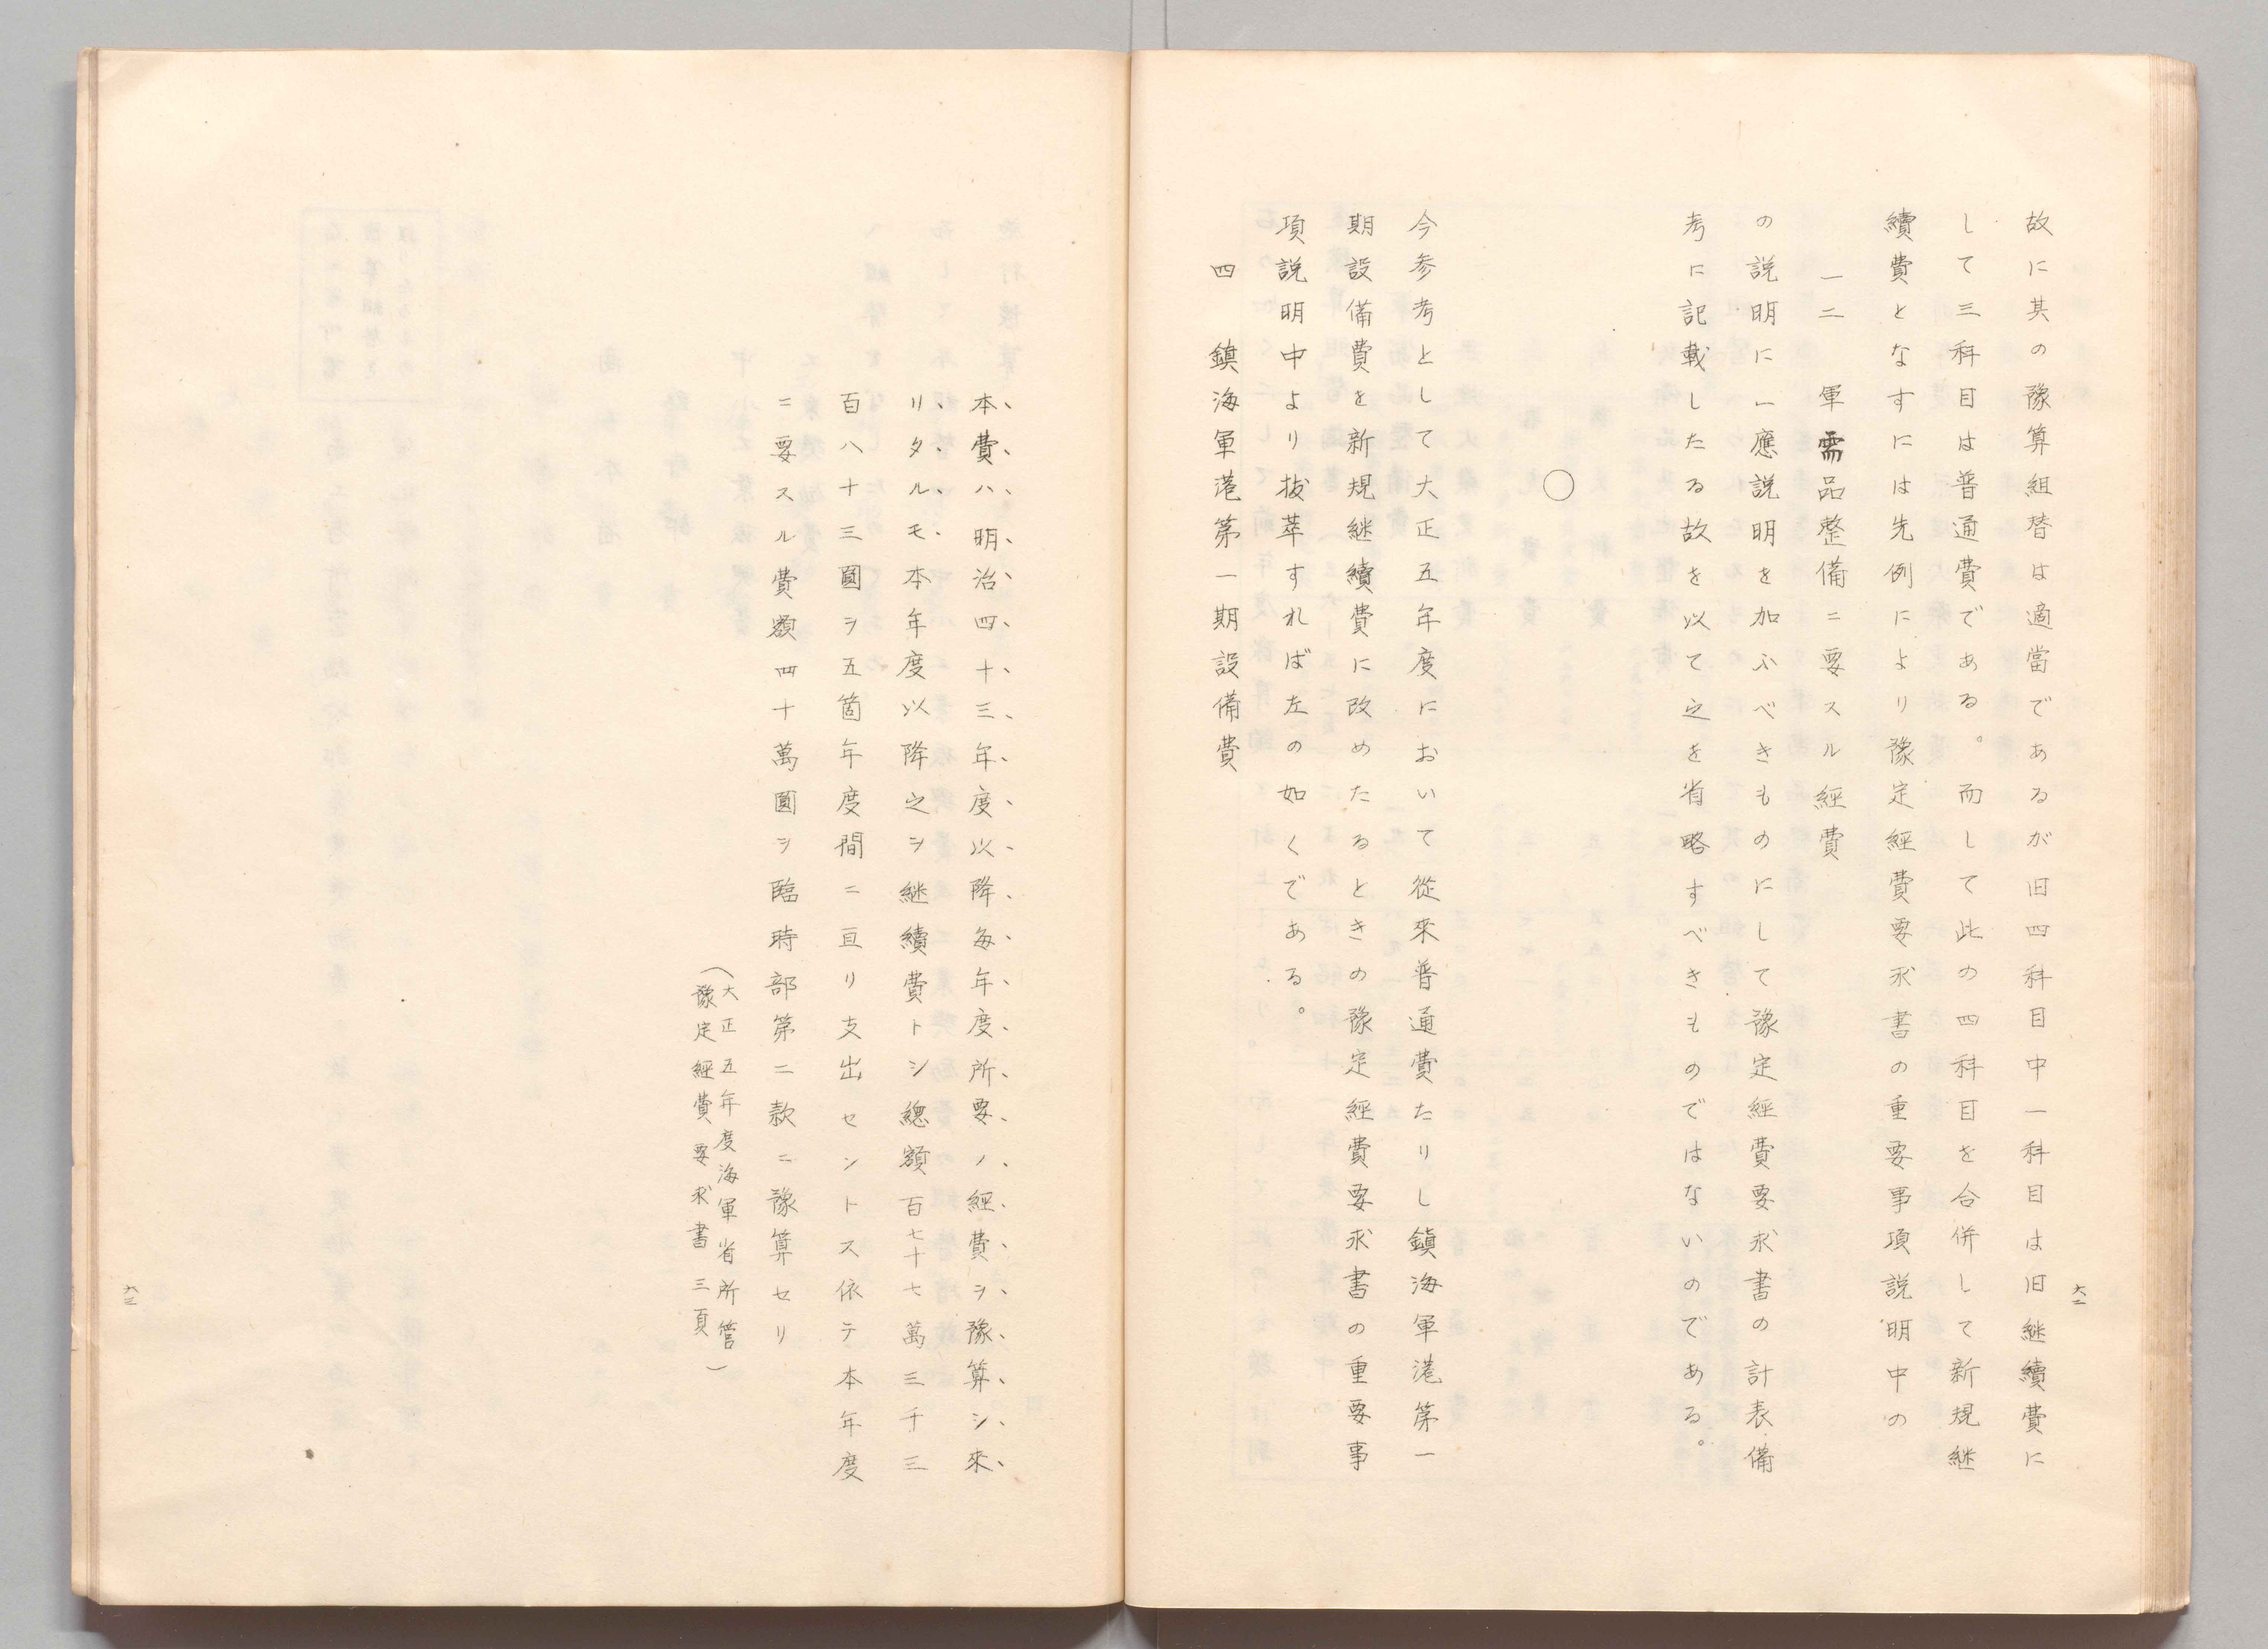 故に其の豫算組替は適當であるが旧四科目中一科目は旧継續費に
して三科目は普通費である。而して此の四科目を合併して新規継
續費となすには先例により豫定經費要求書の重要事項説明中の
一二　軍需品整備ニ要スル經費
の説明に一應説明を加ふべきものにして豫定經費要求書の計表備
考に記載したる故を以て之を省略すべきものではないのである。
○
今参考として大正五年度において從來普通費たりし鎮海軍港第一
期設備費を新規継續費に改めたるときの豫定經費要求書の重要事
項説明中より抜萃すれば左の如くである。
四　鎮海軍港第一期設備費
六二
本費ハ明治四十三年度以降毎年度所要ノ經費ヲ豫算シ來
リタルモ本年度以降之ヲ継續費トシ總額百七十七萬三千三
百八十三圓ヲ五箇年度間ニ亘リ支出セントス依テ本年度
ニ要スル費額四十萬圓ヲ臨時部第二款ニ豫算セリ
（大正五年度海軍省所管
豫定經費要求書三頁）
六三